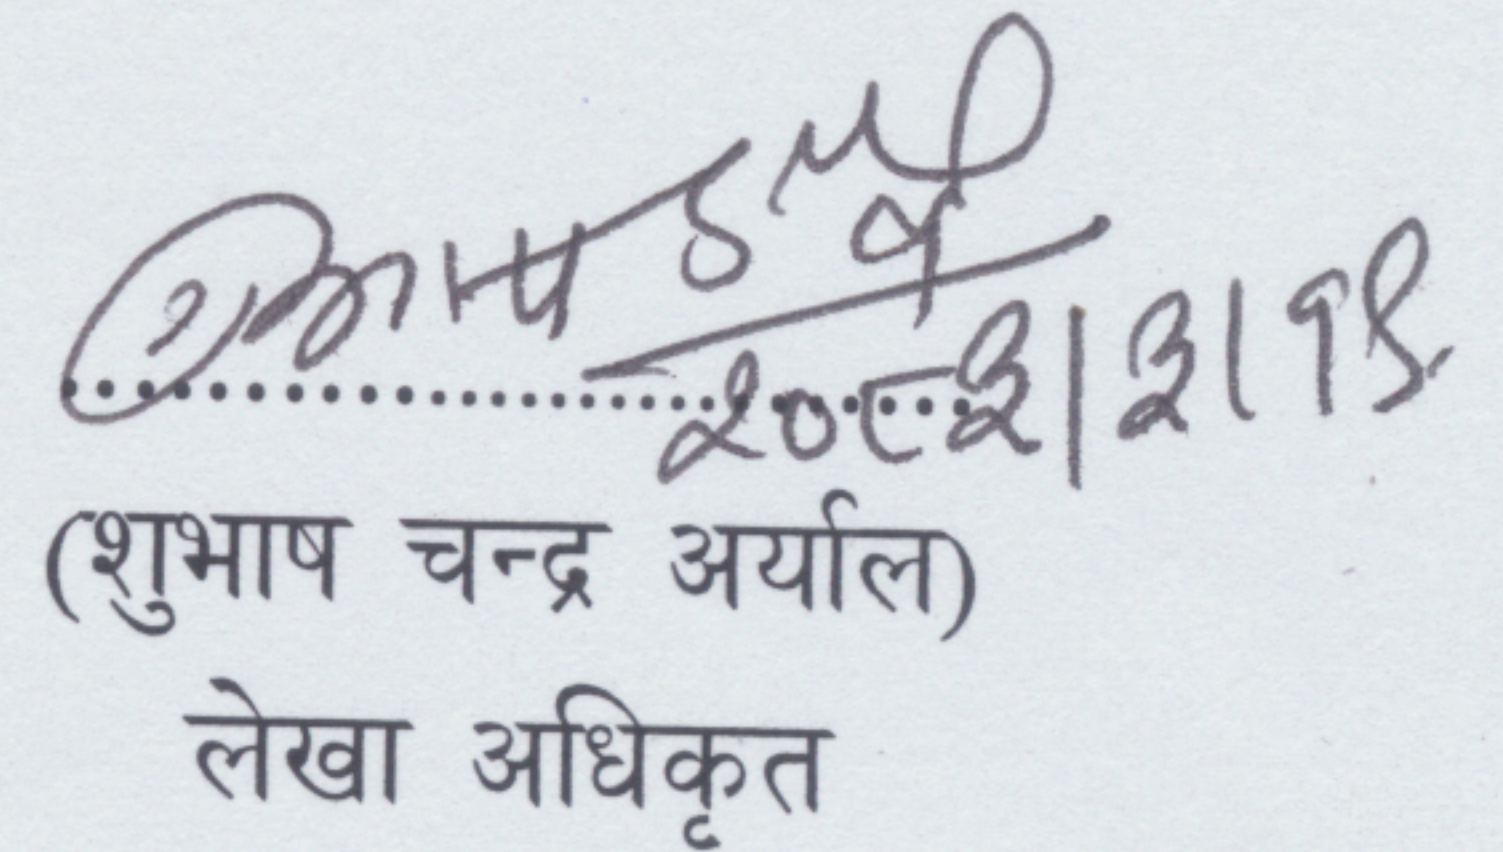 २०८३|३|१९
(शुभाष चन्द्र अर्याल)
लेखा अधिकृत